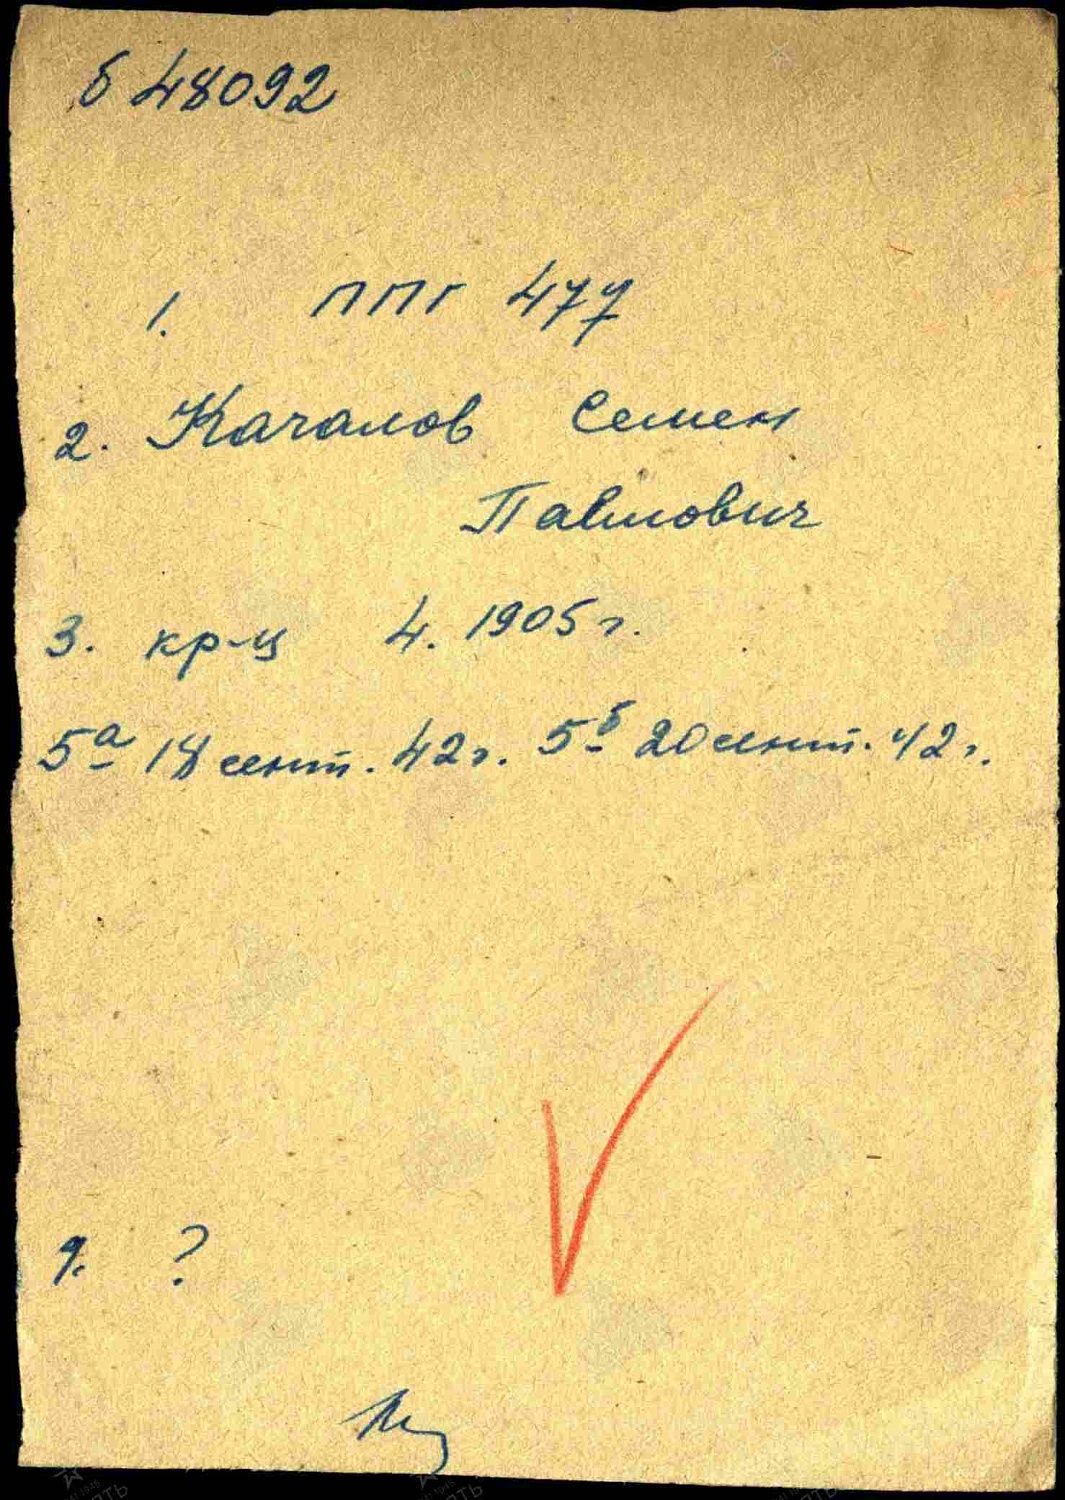 б 48092
1. ППГ 477
2. Качалов Семен
Павлович
3. кр-ц 4. 1905 г.
5а 18 сент. 42 г. 5б 20 сент. 42 г.
9. ?